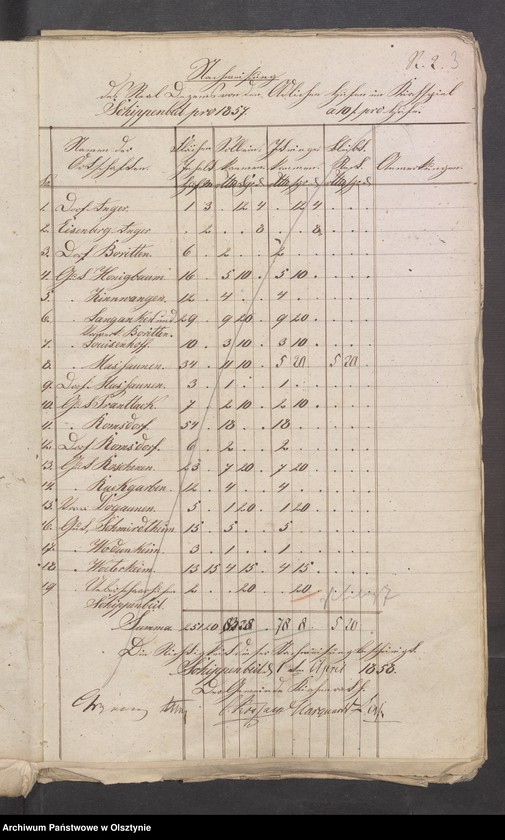 N. 2. 3
Nachweisung
des Real Dezems von den Adlichen Hufen im Kirchspiel
Schippenbeil pro 1857. a 10 f pro Hufe.
No. Namen der Ortschaften. Flächen Inhalt Soll Einkommen Ist Einkommen Bleibt Rest Anmerkungen.
1. Dorf Inger. 1 3 . 12 4 . 12 4
2. Eisenberg Inger . 2 . . 8 . . 8
3. Dorf Boritten. 6 . 2 . . 2
4. Gut Honigbaum 16 . 5 10 . 5 10
5. " Kinnwangen. 12 . 4 . . 4
6. " Langanken und 29 . 9 20 . 9 20
Vorwerk Boritten.
7. Louisenhoff. 10 . 3 10 . 3 10
8. " Massaunen. 34 . 11 10 . 5 20 . 5 20
9. Dorf Massaunen. 3 . 1 . . 1
10. Gut Prantlack. 7 . 2 10 . 2 10
11. " Romsdorf. 54 . 18 . . 18
12. Dorf Romsdorf. 6 . 2 . . 2
13. Gut Roschenen. 23 . 7 20 . 7 20
14. " Rückgarben. 12 . 4 . . 4
15. 5 . 1 20 . 1 20
16. Gut Schmirdtkeim 15 . 5 . . 5
17. " Wodunkeim. 3 . 1 . . 1
18. " Woterkeim. 13 15 4 15 . 4 15
19. 2 . . 20 . . 20
Schippenbeil.
Summa 251 20 83 28 78 8 5 20
Die Richtigkeit dieser Nachweisung bescheinigt
Schippenbeil d. 1 ten April 1858.
Der Gemeinde Kirchenrath.
Marquardt
Archiwum Państwowe w Olsztynie